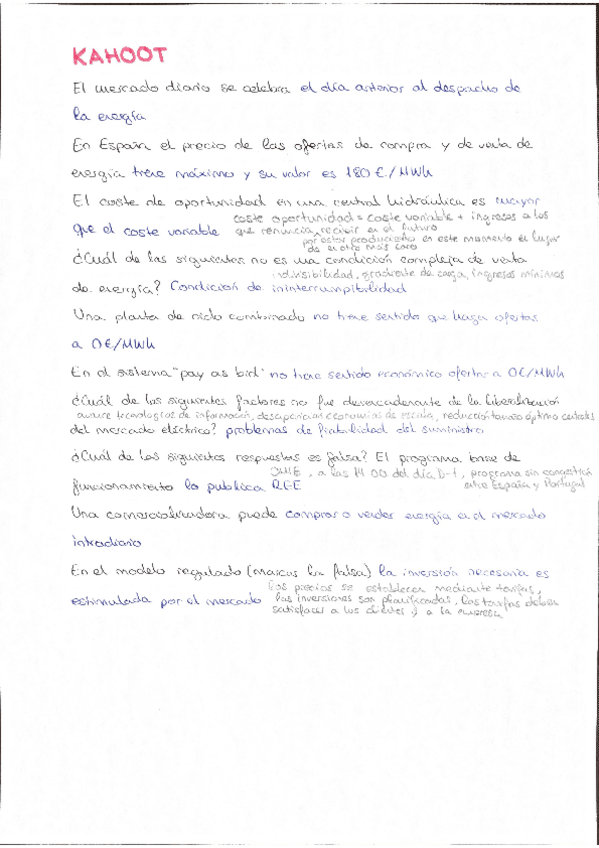 KAHOOT
El mercado diario se celebra el día anterior al despacho de
la energía
En España el precio de las ofertas de compra y de venta de
energía tiene máximo y su valor es 180 €/MWh
El coste de oportunidad en una central hidráulica es mayor
que el coste variable coste oportunidad = coste variable + ingresos a los
que renuncia recibir en el futuro
por estar produciendo en este momento en lugar
de en otro más caro
¿Cuál de las siguientes no es una condición compleja de venta
indivisibilidad, gradiente de carga, ingresos mínimos
de energía? Condición de ininterrumpibilidad
Una planta de ciclo combinado no tiene sentido que haga ofertas
a 0€/MWh
En el sistema "pay as bid" no tiene sentido económico ofertar a 0€/MWh
¿Cuál de los siguientes factores no fue desencadenante de la liberalización
avance tecnologías de información, desaparecen economías de escala, reducción tamaño óptimo centrales
del mercado eléctrico? problemas de fiabilidad del suministro
¿Cuál de las siguientes respuestas es falsa? El programa base de
OMIE, a las 14:00 del día D-1, programa sin congestión
funcionamiento lo publica REE entre España y Portugal
Una comercializadora puede comprar o vender energía en el mercado
intradiario
En el modelo regulado (marcas la falsa) la inversión necesaria es
los precios se establecen mediante tarifas,
estimulada por el mercado las inversiones son planificadas, las tarifas deben
satisfacer a los clientes y a la empresa